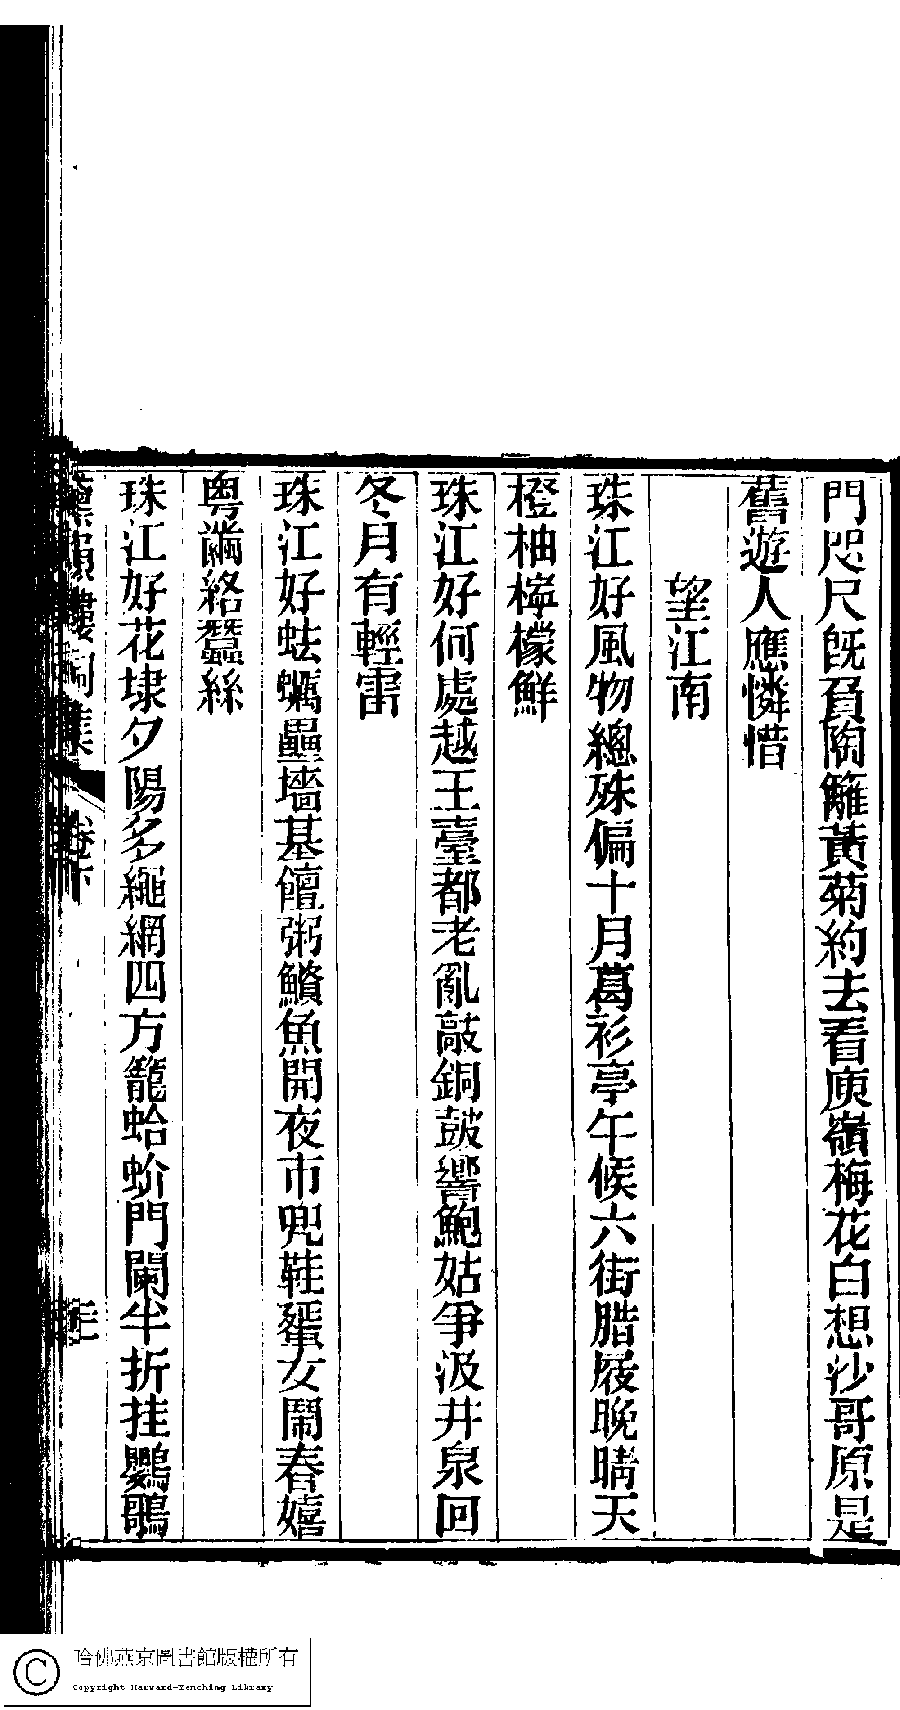 門咫尺既負陶籬黃菊約去看庾嶺梅花白想沙哥原是
舊遊人應憐惜
望江南
珠江好風物總殊偏十月葛衫亭午候六街腊屐晚晴天
橙柚檸檬鮮
珠江好何處越王臺都老亂敲銅鼓響鮑姑爭汲井泉回
冬月有輕雷
珠江好蚝蠣壘墻基饘粥鱝魚開夜市兜鞋疍女鬧春嬉
粵繭絡蠶絲
珠江好花埭夕陽多繩網四方籠蛤蚧門闌半折挂鸚鵡
卷下
哈佛燕京圖書館版權所有
Copyright Harvard-Yenching Library